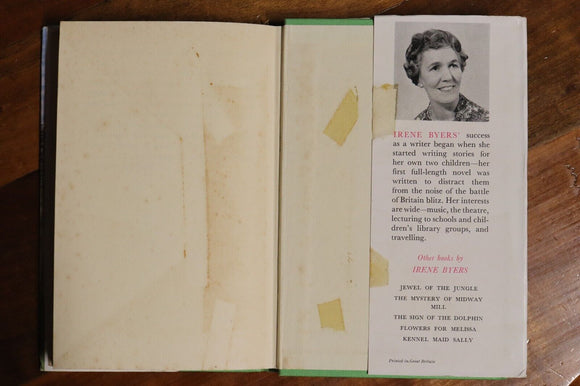 IRENE BYERS' success
as a writer began when she
started writing stories for
her own two children—her
first full-length novel was
written to distract them
from the noise of the battle
of Britain blitz. Her interests
are wide—music, the theatre,
lecturing to schools and chil-
dren's library groups, and
travelling.
Other books by
IRENE BYERS
JEWEL OF THE JUNGLE
THE MYSTERY OF MIDWAY
MILL
THE SIGN OF THE DOLPHIN
FLOWERS FOR MELISSA
KENNEL MAID SALLY
Printed in Great Britain